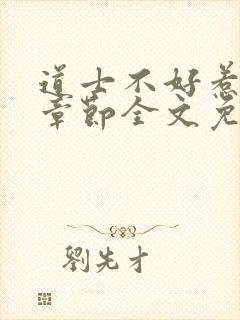 道士不好惹
章節全文免
劉先才